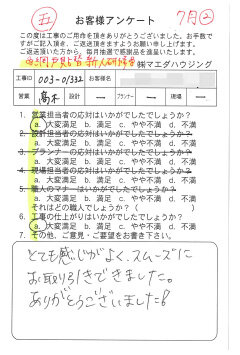 五
お客様アンケート
7月②
この度は工事のご用命を頂きありがとうございました。お手数で
すがご記入頂き、ご返送頂きますようお願い申し上げます。
ご返送頂いた方から、毎月抽選で感謝品を進呈いたします。
網戸貼替
㈱マエダハウジング
工事ID 003-01332 お客様名
営業 高木 設計 ー プランナー ー 現場 ー
1. 営業担当者の応対はいかがでしたでしょうか?
a. 大変満足 b. 満足 c. やや不満 d. 不満
2. 設計担当者の応対はいかがでしたでしょうか?
a. 大変満足 b. 満足 c. やや不満 d. 不満
3. プランナーの応対はいかがでしたでしょうか?
a. 大変満足 b. 満足 c. やや不満 d. 不満
4. 現場担当者の応対はいかがでしたでしょうか?
a. 大変満足 b. 満足 c. やや不満 d. 不満
5. 職人のマナーはいかがでしたでしょうか?
それはどの職人でしょうか?( )
a. 大変満足 b. 満足 c. やや不満 d. 不満
6. 工事の仕上がりはいかがでしたでしょうか?
a. 大変満足 b. 満足 c. やや不満 d. 不満
7. その他、ご意見・ご要望をお書き下さい。
とても感じがよく、スムーズに
お取り引きできました。
ありがとうございました!